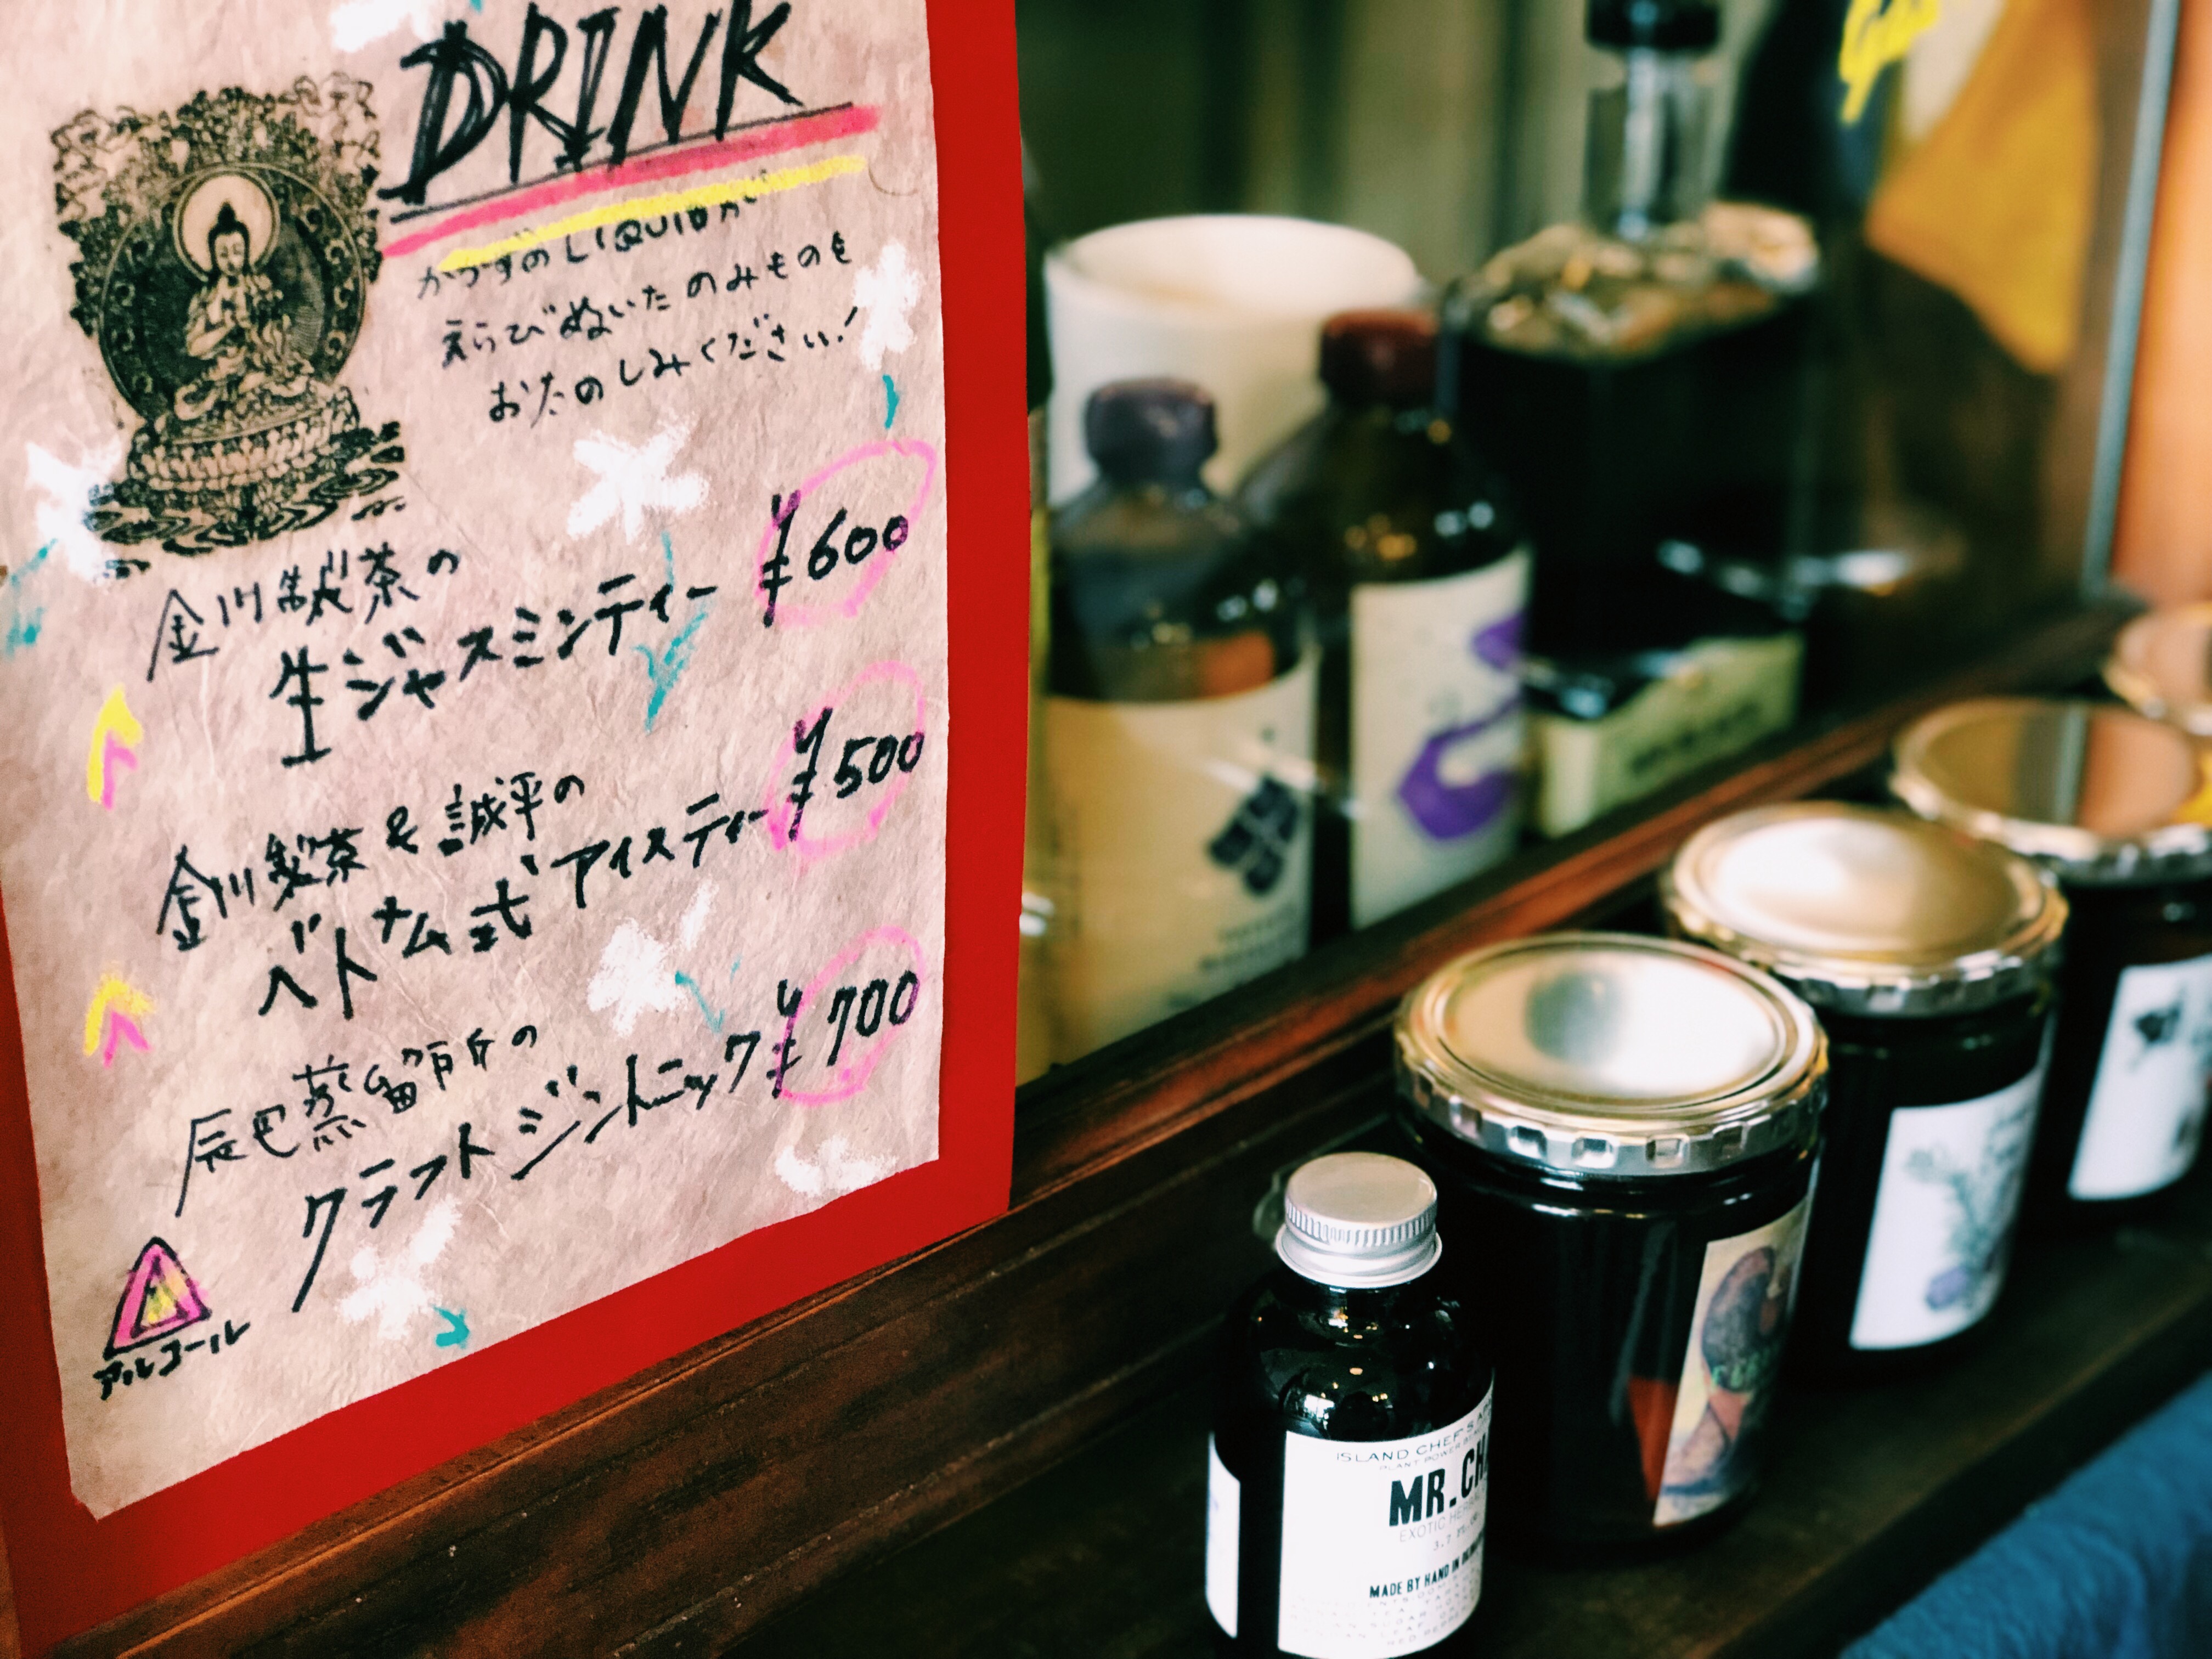 DRINK
かつずの LIQUIDが
えらびぬいた のみものも
おたのしみください!
金川製茶の
生ジャスミンティー ¥600
金川製茶 & 誠平の
ベトナム式 アイスティー ¥500
辰巳蒸留所の
クラフト ジントニック ¥700
アルコール
ISLAND CHEF'S
PLANT POWER
MR. CH
EXOTIC
3.7
MADE BY HAND IN